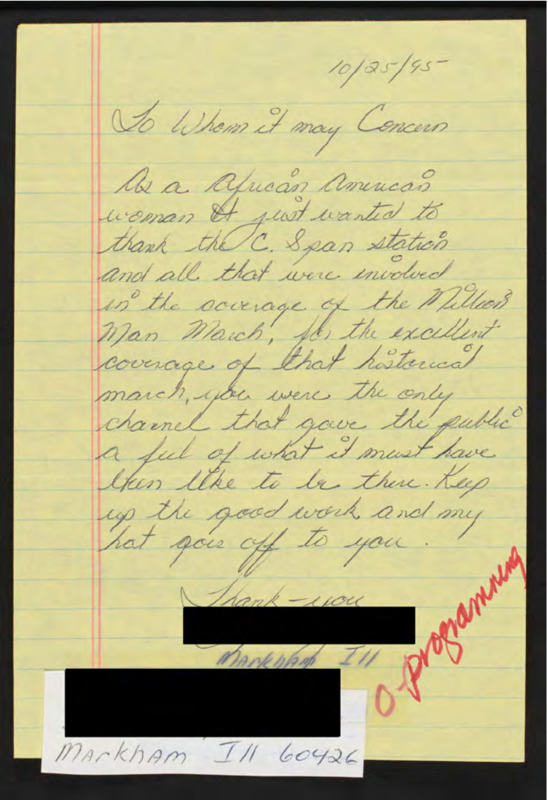 10/25/95
To Whom it may Concern
As a African American
woman I just wanted to
thank the C. Span station
and all that were involved
in the coverage of the Million
Man March, for the excellent
coverage of that historical
march, you were the only
channel that gave the public
a feel of what it must have
been like to be there. Keep
up the good work and my
hat goes off to you.
Thank-you
Markham Ill
O-programming
Markham Ill 60426